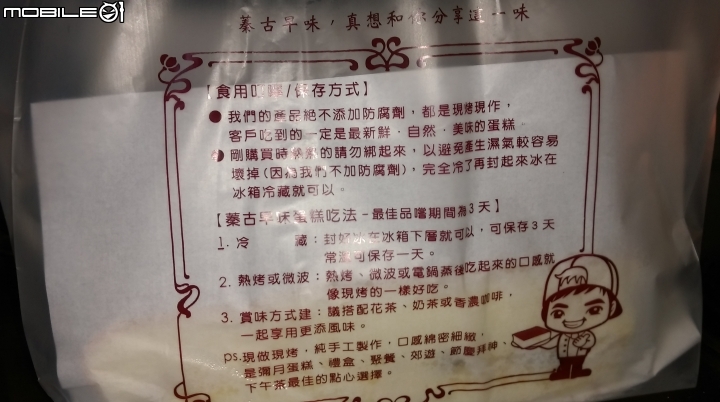 MOBILE01
蓁古早味，真想和你分享這一味
【食用叮嚀/保存方式】
● 我們的產品絕不添加防腐劑，都是現烤現作，
客戶吃到的一定是最新鮮．自然．美味的蛋糕．
● 剛購買時熱熱的請勿綁起來，以避免產生濕氣較容易
壞掉(因為我們不加防腐劑)，完全冷了再封起來冰在
冰箱冷藏就可以。
【蓁古早味蛋糕吃法－最佳品嚐期間為3天】
1. 冷　　藏：封好冰在冰箱下層就可以，可保存3天
常溫可保存一天。
2. 熱烤或微波：熱烤、微波或電鍋蒸後吃起來的口感就
像現烤的一樣好吃。
3. 賞味方式建：議搭配花茶、奶茶或香濃咖啡，
一起享用更添風味。
ps.現做現烤，純手工製作，口感綿密細緻，
是彌月蛋糕、禮盒、聚餐、郊遊、節慶拜神、
下午茶最佳的點心選擇。